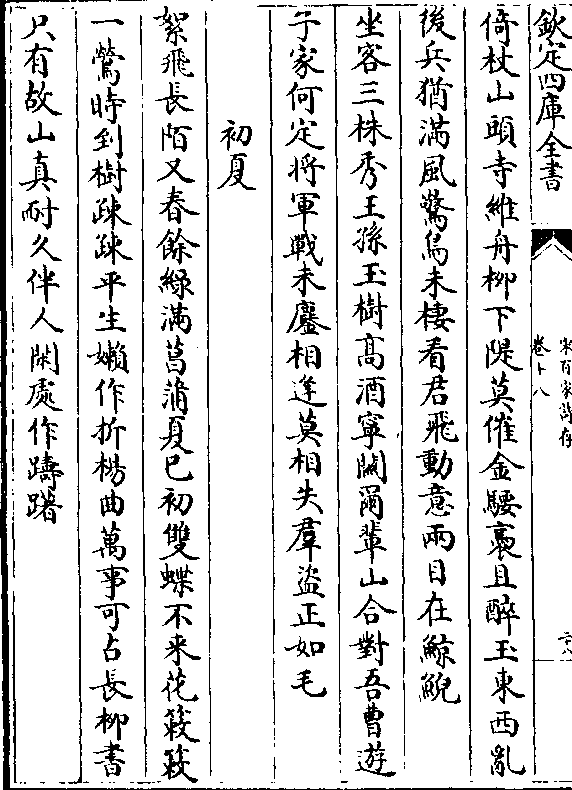 欽定四庫全書
宋百家詩存
卷十八
倚杖山頭寺維舟栁下隄莫催金騕褭且醉玉東西亂
後兵猶滿風驚烏未棲看君飛動意兩目在鯨鯢
坐客三株秀王孫玉樹髙酒寧闕爾輩山合對吾曹遊
子家何定將軍戰未鏖相逢莫相失羣盗正如毛
初夏
絮飛長陌又春餘緑滿菖蒲夏已初雙蝶不来花簌簌
一鶯時到樹疎疎平生嬾作折楊曲萬事可占長栁書
只有故山真耐久伴人閑處作躊躇